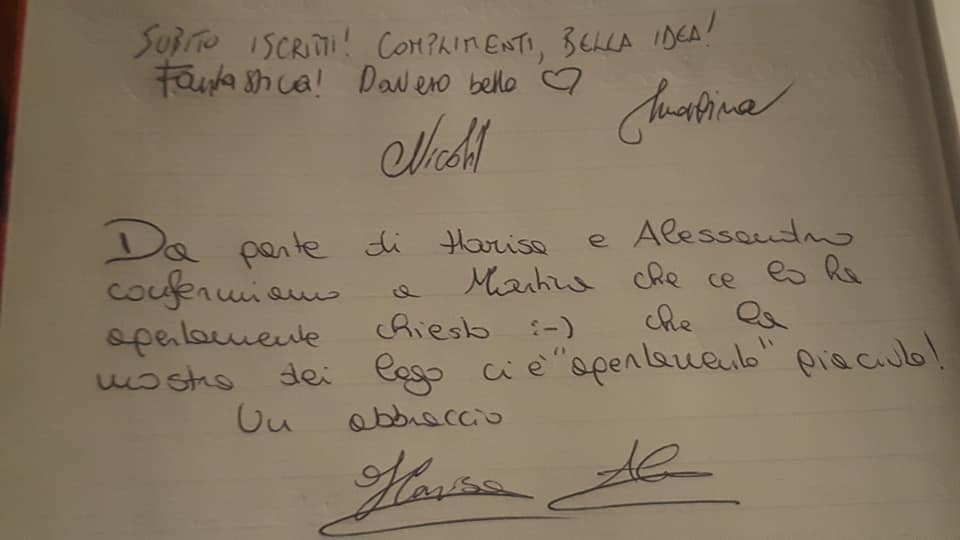 SUBITO ISCRITTI! COMPLIMENTI, BELLA IDEA!
Fantastica! Davvero bello ♡
Martina
Nicol
Da parte di Marisa e Alessandro
confermiamo a Martina che ce lo ha
apertamente chiesto :-) che la
mostra dei lego ci è "apertamente" piaciuta!
Un abbraccio
Marisa Ale